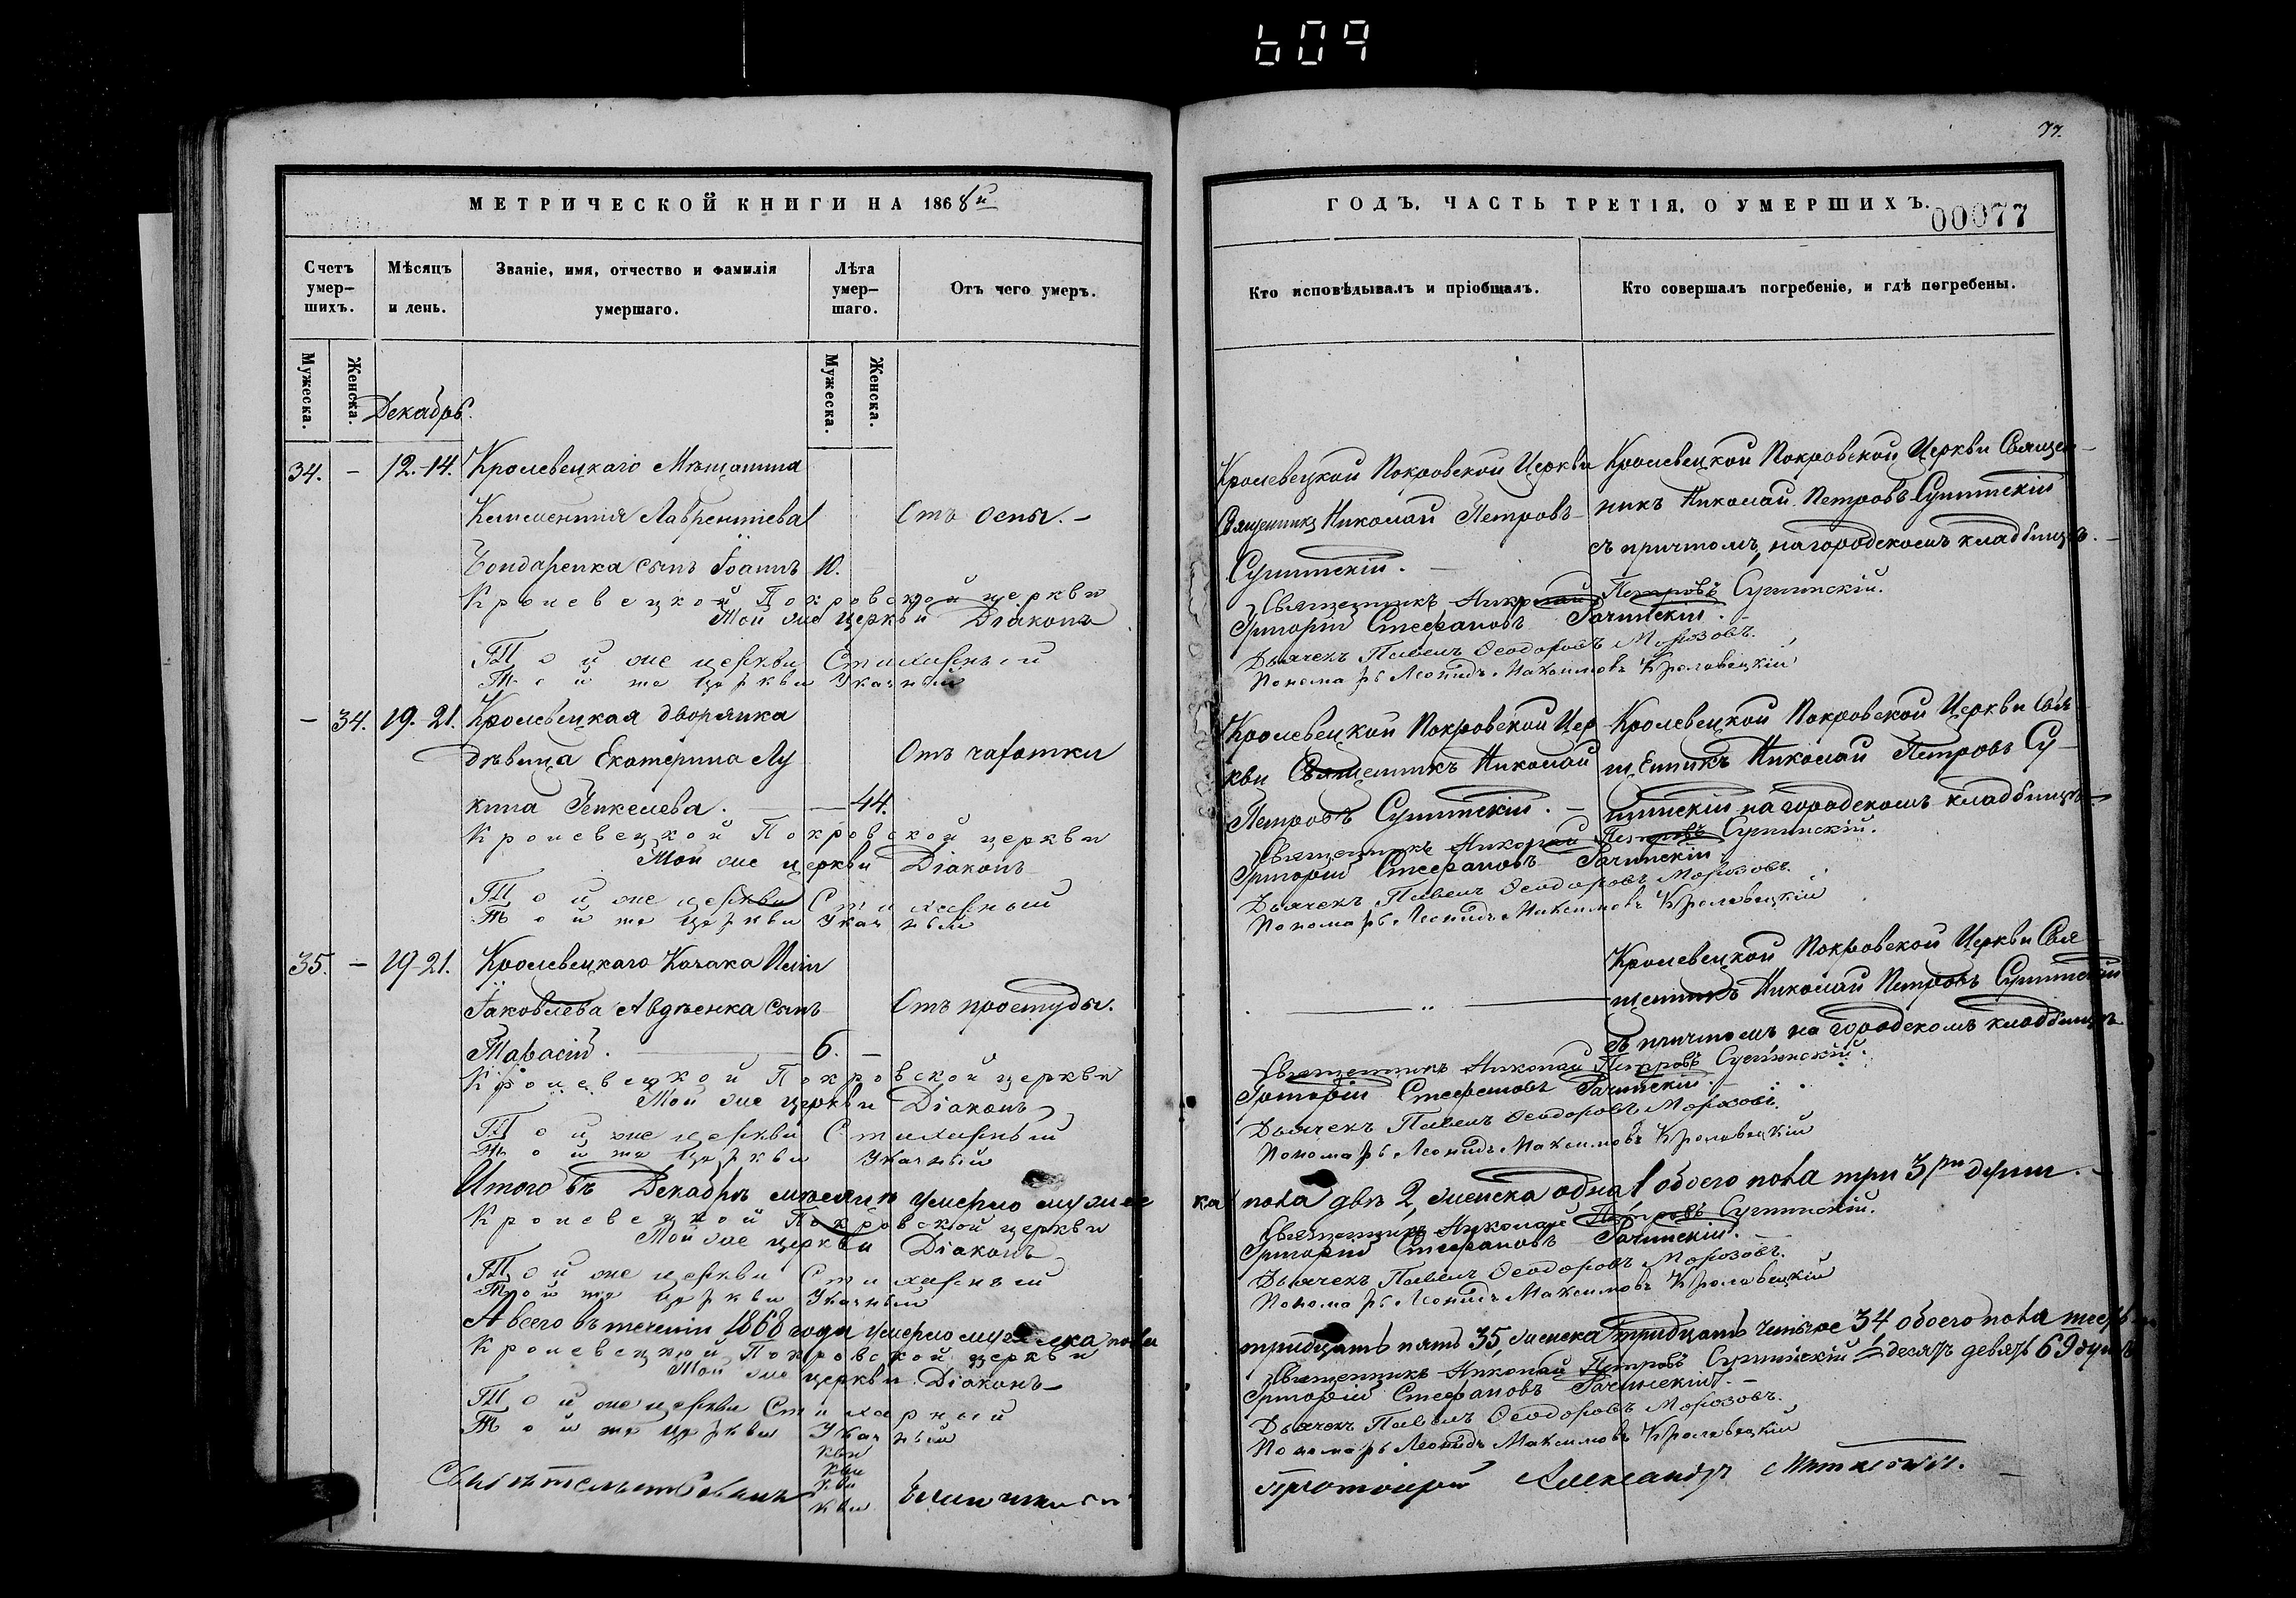 609
77.
МЕТРИЧЕСКОЙ КНИГИ НА 1868й
Счетъ умерших.
Мѣсяцъ и день.
Званіе, имя, отчество и фамилія умершаго.
Лѣта умершаго.
Отъ чего умеръ.
Мужеска.
Женска.
Мужеска.
Женска.
Декабрь.
34. - 12.-14. Кролевецкаго Мѣщанина
Климентія Лаврентіева Отъ оспы.-
Бондаренка сынъ Іоаннъ 10.
Кролевецкой Покровской церкви
Той же церкви Діаконъ
Той же церкви Стихарный
Той же церкви Указный
- 34. 19.-21. Кролевецкая дворянка
дѣвица Екатерина Лу Отъ чахотки
кина 44.
Кролевецкой Покровской церкви
Той же церкви Діаконъ
Той же церкви Стихарный
Той же церкви Указный
35. - 19-21. Кролевецкаго Козака
Іаковлева Авдѣенка сынъ Отъ простуды.
Тарасій. 6. -
Кролевецкой Покровской церкви
Той же церкви Діаконъ
Той же церкви Стихарный
Той же церкви Указный
Итого въ Декабрѣ мѣсяцѣ умерло мужес
Кролевецкой Покровской церкви
Той же церкви Діаконъ
Той же церкви Стихарный
Той же церкви Указный
А всего въ теченіи 1868 года умерло мужеска пола
Кролевецкой Покровской церкви
Той же церкви Діаконъ
Той же церкви Стихарный
Той же церкви Указный
Свидѣтельствовалъ
ГОДЪ. ЧАСТЬ ТРЕТІЯ, О УМЕРШИХЪ.
00077
Кто исповѣдывалъ и пріобщалъ.
Кто совершалъ погребеніе, и гдѣ погребены.
Кролевецкой Покровской Церкви
Священникъ Николай Петровъ
Сушинскій.
Кролевецкой Покровской Церкви Священ-
никъ Николай Петровъ Сушинскій
съ причтомъ, на городскомъ кладбищѣ.
Священникъ Николай Петровъ Сушинскій.
Григорій Стефановъ Рачинскій.
Дьячекъ Павелъ Ѳеодоровъ Морозовъ.
Пономарь Леонидъ Максимовъ Кролевецкій
Кролевецкой Покровской Цер
кви Священникъ Николай
Петровъ Сушинскій. -
Кролевецкой Покровской Церкви Свя
щенникъ Николай Петровъ Су-
шинскій на городскомъ кладбищѣ
Священникъ Николай Петровъ Сушинскій.
Григорій Стефановъ Рачинскій
Дьячекъ Павелъ Ѳеодоровъ Морозовъ.
Пономарь Леонидъ Максимовъ Кролевецкій
Кролевецкой Покровской Церкви Свя
щенникъ Николай Петровъ Сушинскій
съ причтомъ на городскомъ кладбищѣ
Священникъ Николай Петровъ Сушинскій.
Григорій Стефановъ Рачинскій.
Дьячекъ Павелъ Ѳеодоровъ Морозовъ.
Пономарь Леонидъ Максимовъ Кролевецкій
ка пола двѣ 2, женска одна 1 обоего пола три 3ри души.
Священникъ Николай Петровъ Сушинскій.
Григорій Стефановъ Рачинскій.
Дьячекъ Павелъ Ѳеодоровъ Морозовъ.
Пономарь Леонидъ Максимовъ Кролевецкій
тридцать пять 35, женска тридцать четыре 34 обоего пола шесть
десятъ девять 69 душъ
Священникъ Николай Петровъ Сушинскій
Григорій Стефановъ Рачинскій.
Дьячекъ Павелъ Ѳеодоровъ Морозовъ.
Пономарь Леонидъ Максимовъ Кролевецкій
Протоіерей Александръ